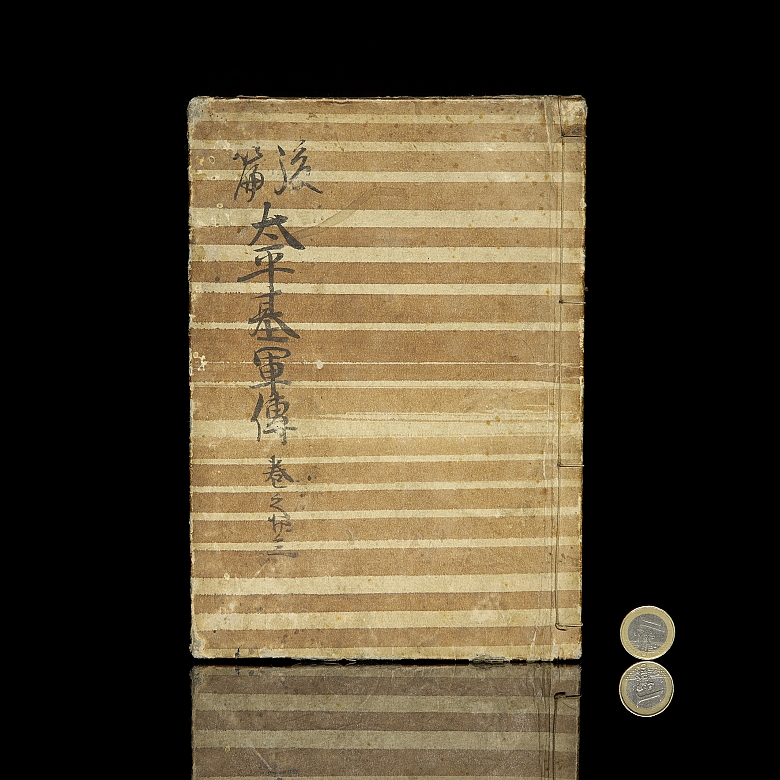 後篇
太平基軍傳 巻之廿三